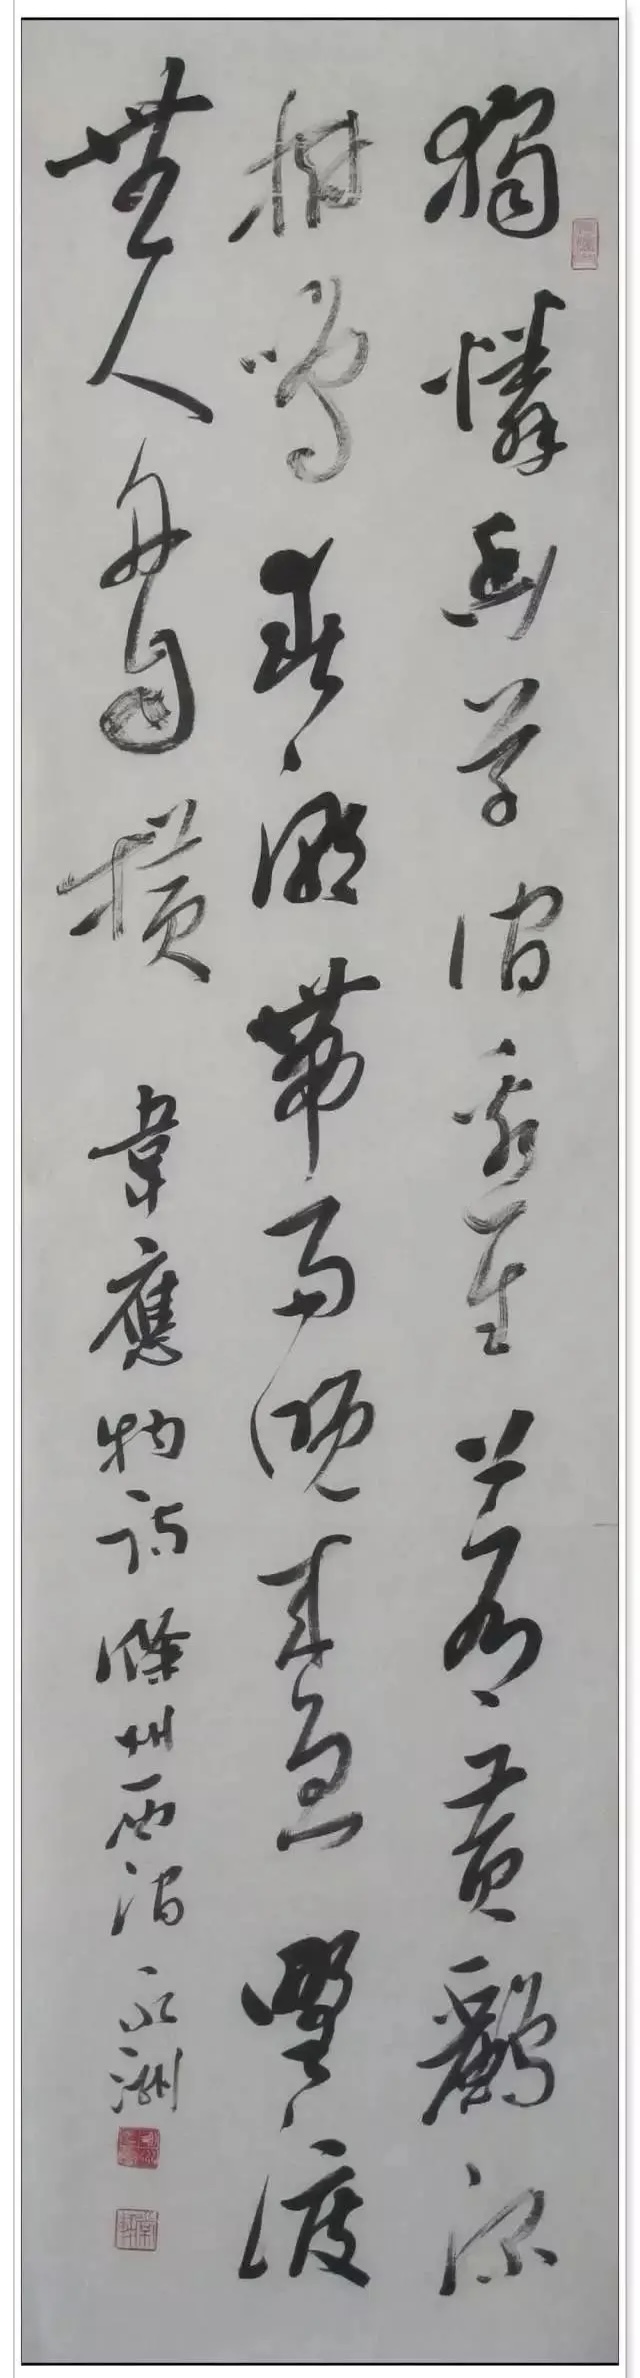 獨憐幽草澗邊生上有黃鸝深
樹鳴春潮帶雨晚來急野渡
無人舟自橫 韋應物詩滁州西澗 永洲